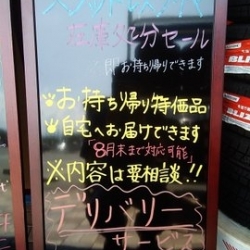 スタッドレスタイヤ
在庫処分セール
即お持ち帰りできます
お持ち帰り特価品
自宅へお届けできます
「8月末まで対応可能」
※内容は要相談!!
デリバリー
サービス